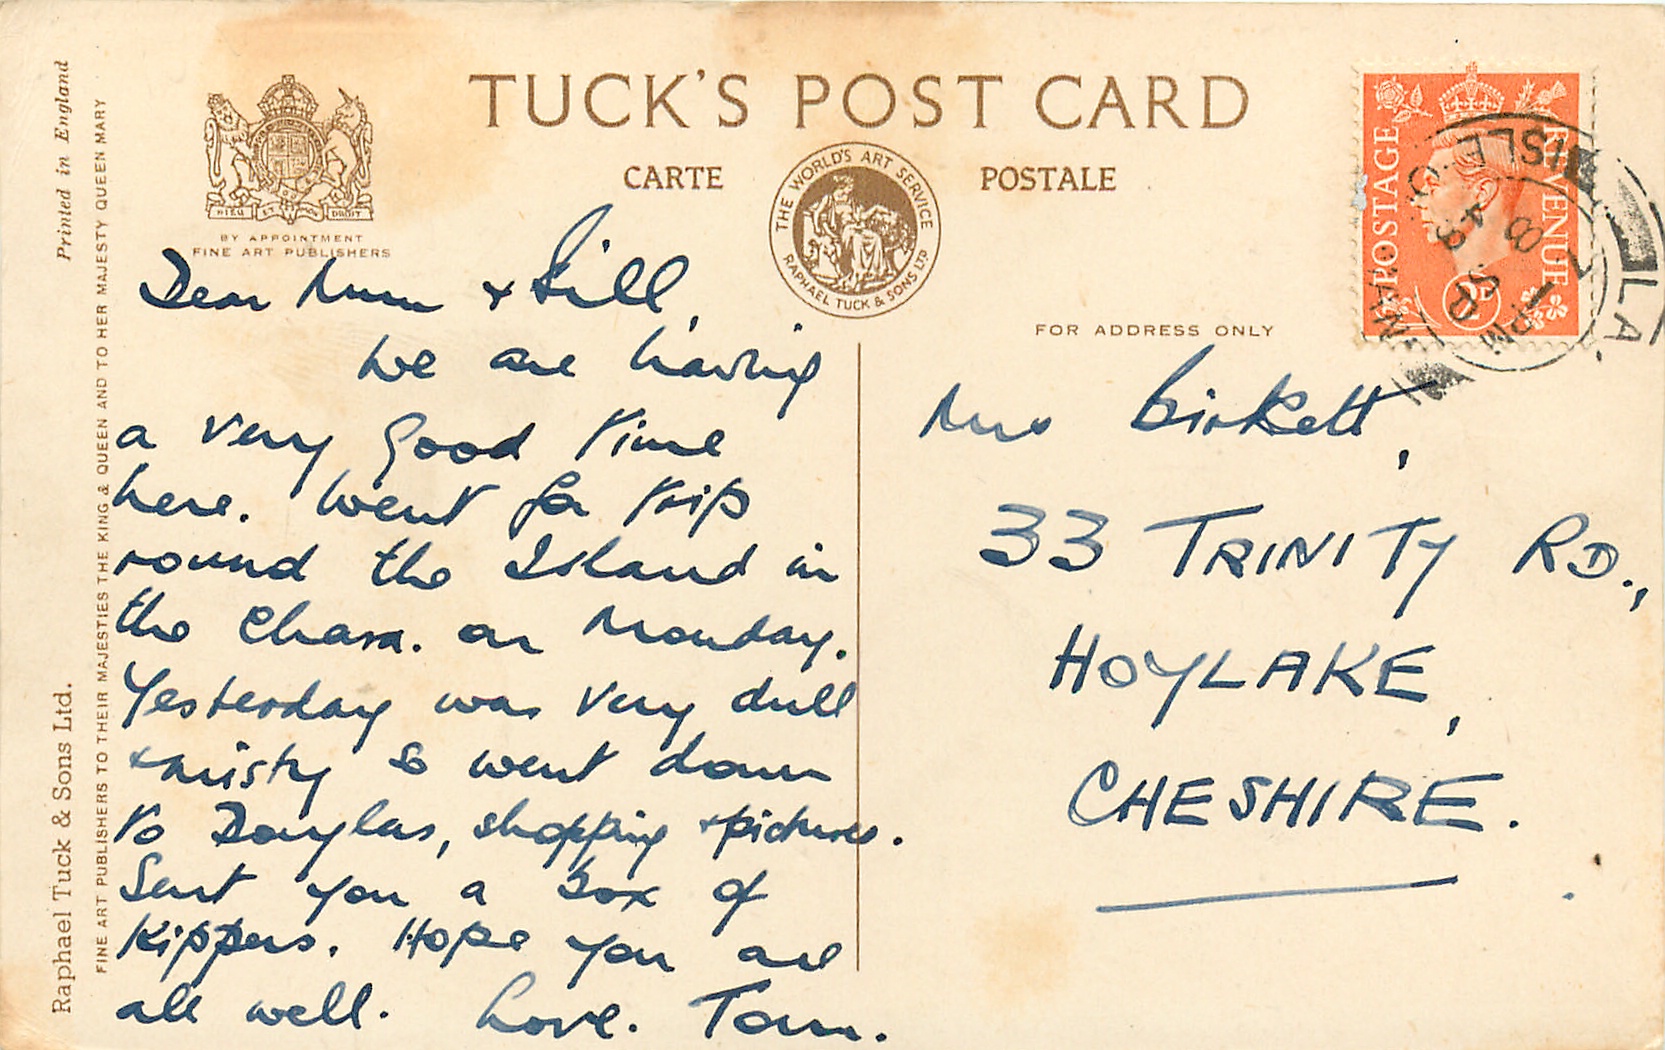 TUCK'S POST CARD
CARTE POSTALE
THE WORLD'S ART SERVICE
RAPHAEL TUCK & SONS LTD
DIEU ET MON DROIT
BY APPOINTMENT
FINE ART PUBLISHERS
Printed in England
Raphael Tuck & Sons Ltd.
FINE ART PUBLISHERS TO THEIR MAJESTIES THE KING & QUEEN AND TO HER MAJESTY QUEEN MARY
POSTAGE
REVENUE
ISLE
MAN
1 PM
7 SP
48
FOR ADDRESS ONLY
Dear Mum & Bill,
We are having
a very good time
here. Went for trip
round the Island in
the Chara. on Monday.
Yesterday was very dull
& misty so went down
to Douglas, shopping & pictures.
Sent you a box of
Kippers. Hope you are
all well. Love. Tom.
Mrs Birkett,
33 TRINITY RD.,
HOYLAKE,
CHESHIRE.